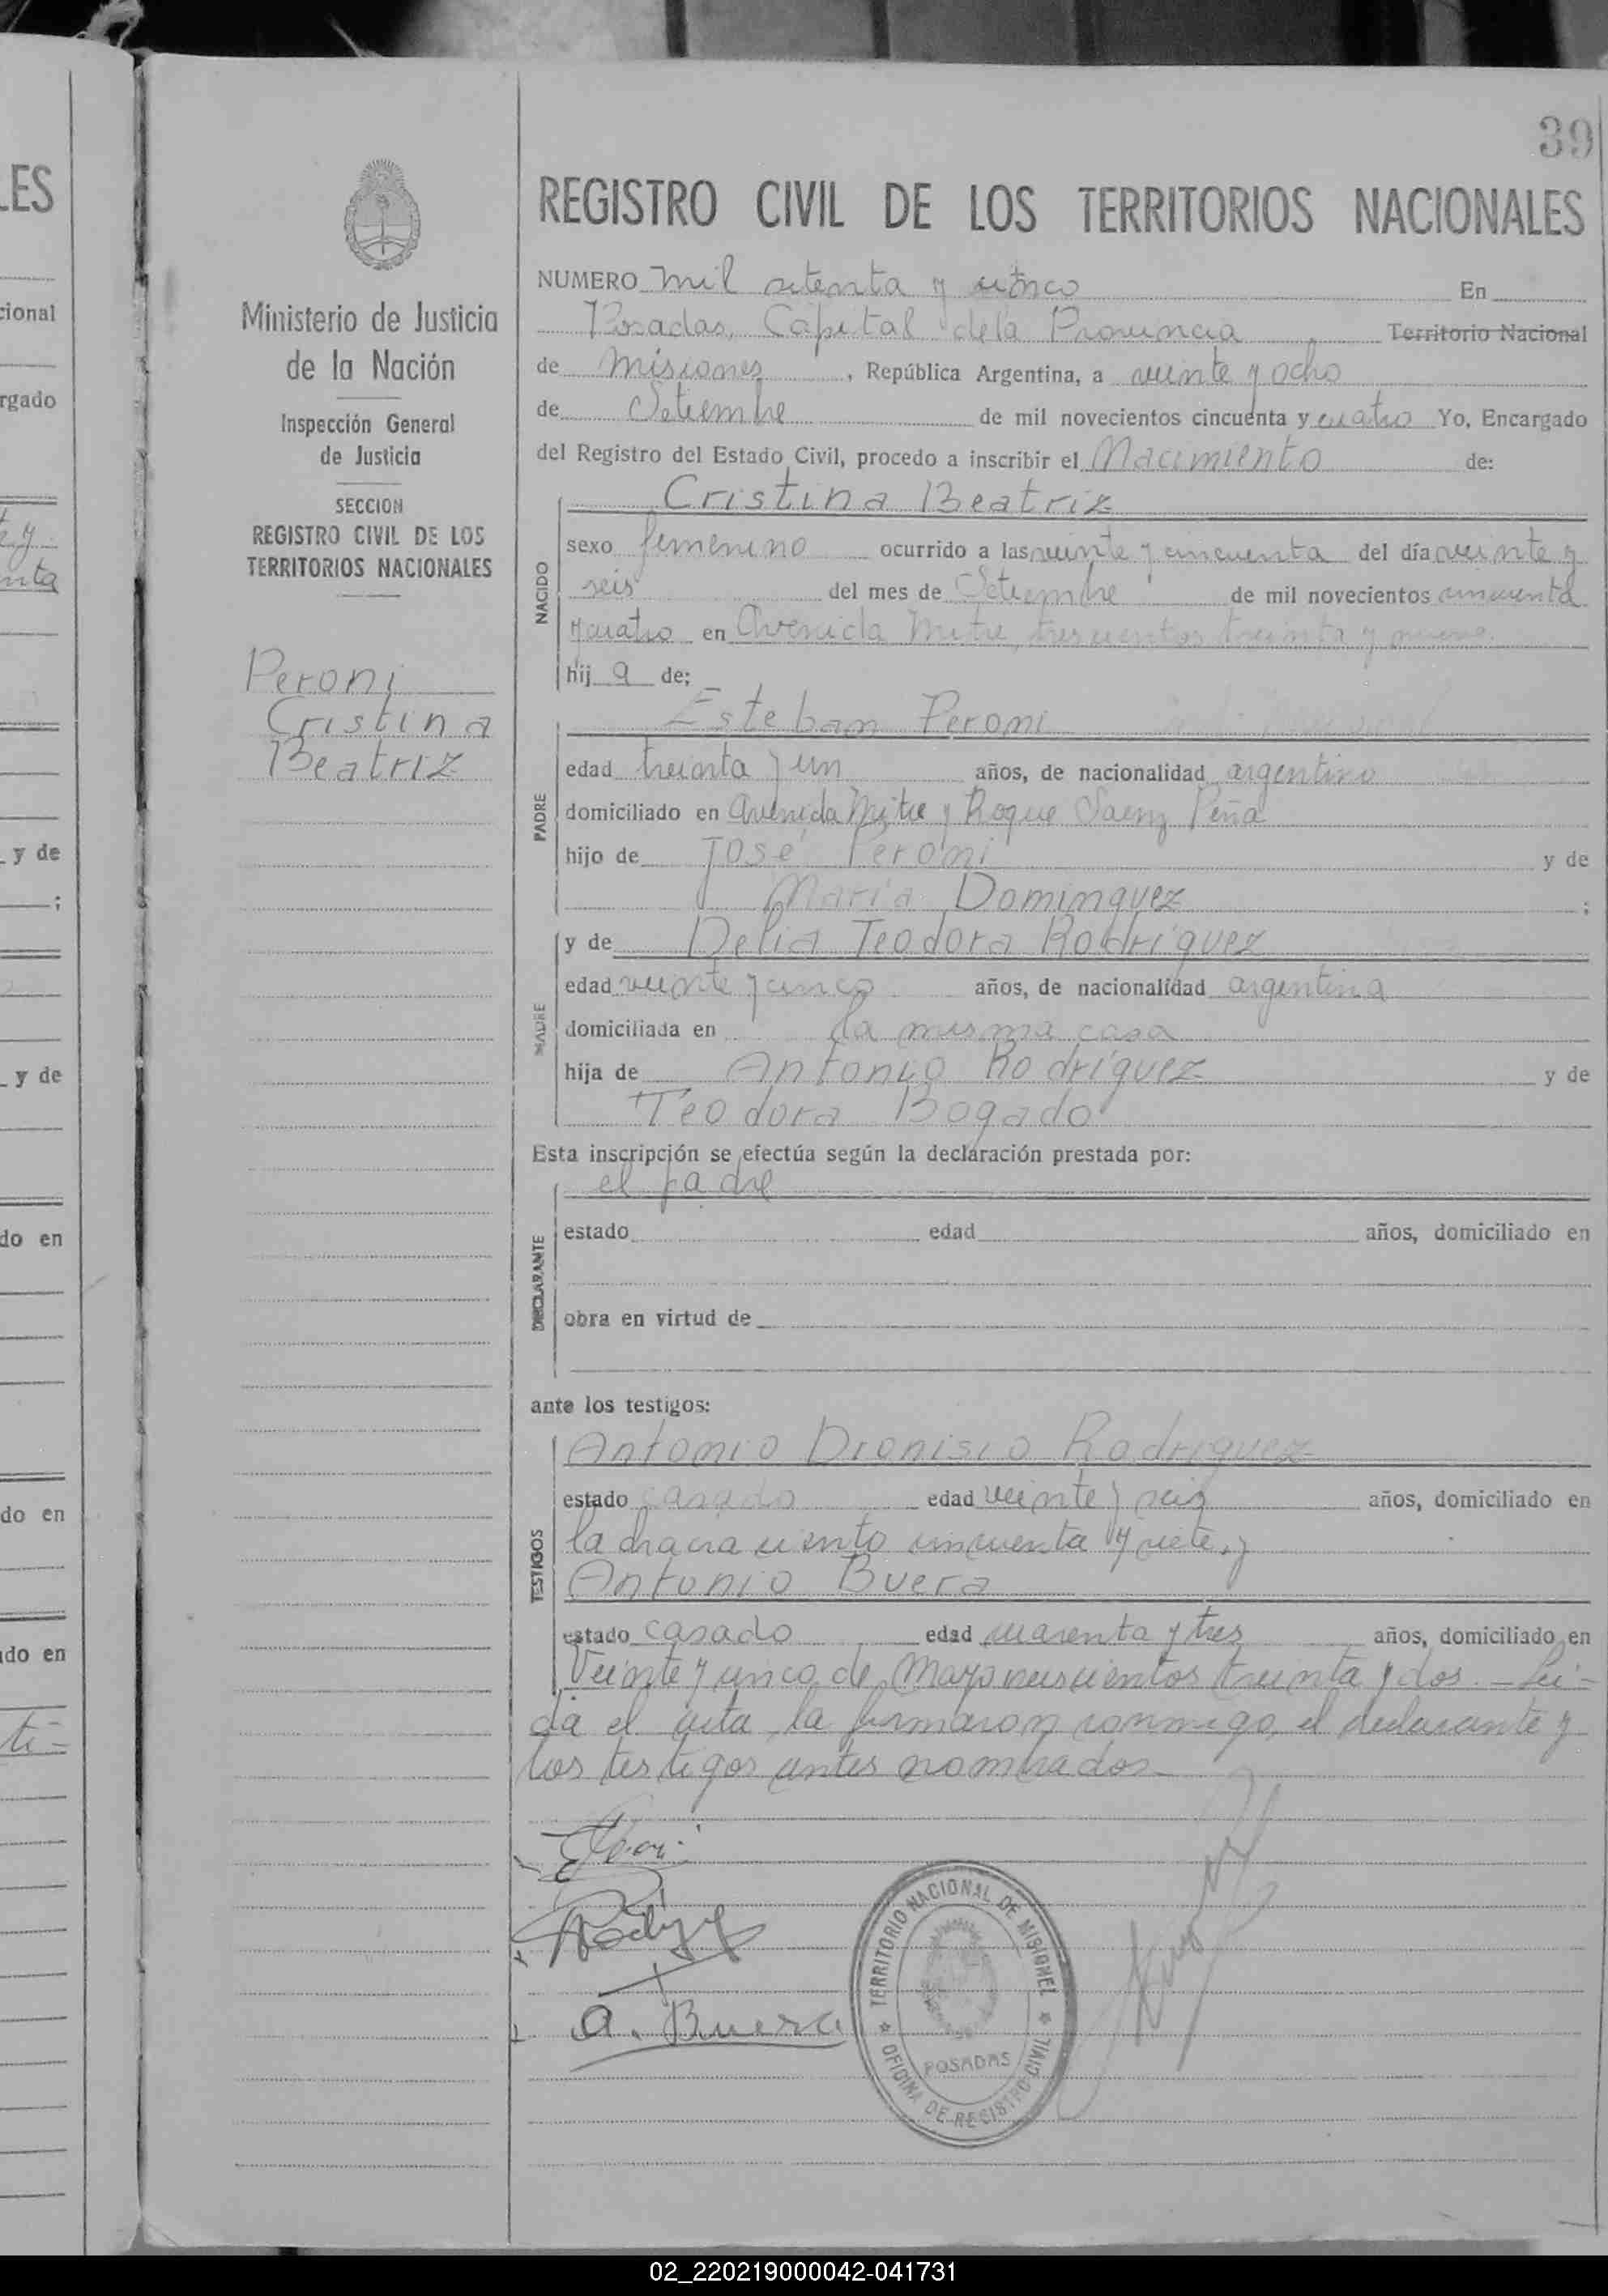 39
REGISTRO CIVIL DE LOS TERRITORIOS NACIONALES
Ministerio de Justicia
de la Nación
Inspección General
de Justicia
SECCION
REGISTRO CIVIL DE LOS
TERRITORIOS NACIONALES
Peroni
Cristina
Beatriz
NUMERO mil setenta y cinco En
Posadas, Capital de la Provincia Territorio Nacional
de Misiones, República Argentina, a veinte y ocho
de Setiembre de mil novecientos cincuenta y cuatro Yo, Encargado
del Registro del Estado Civil, procedo a inscribir el Nacimiento de:
NACIDO
Cristina Beatriz
sexo femenino ocurrido a las veinte y cincuenta del día veinte y
seis del mes de Setiembre de mil novecientos cincuenta
y cuatro en Avenida Mitre, trescientos treinta y nueve.
hij a de:
PADRE
Esteban Peroni
edad treinta y un años, de nacionalidad argentino
domiciliado en Avenida Mitre y Roque Saenz Peña
hijo de José Peroni y de
María Dominguez ;
MADRE
y de Delia Teodora Rodríguez
edad veinte y cinco años, de nacionalidad argentina
domiciliada en la misma casa
hija de Antonio Rodríguez y de
Teodora Bogado
Esta inscripción se efectúa según la declaración prestada por:
DECLARANTE
el padre
estado edad años, domiciliado en
obra en virtud de
ante los testigos:
TESTIGOS
Antonio Dionisio Rodriguez
estado casado edad veinte y seis años, domiciliado en
la chacra ciento cincuenta y siete, y
Antonio Buera
estado casado edad cuarenta y tres años, domiciliado en
Veinte y cinco de Mayo seiscientos treinta y dos. - Leí-
da el acta, la firmaron conmigo, el declarante y
los testigos antes nombrados.
A. Buera
TERRITORIO NACIONAL DE MISIONES
POSADAS
OFICINA DE REGISTRO CIVIL
LES
cional
rgado
y de
;
y de
do en
do en
do en
02_220219000042-041731